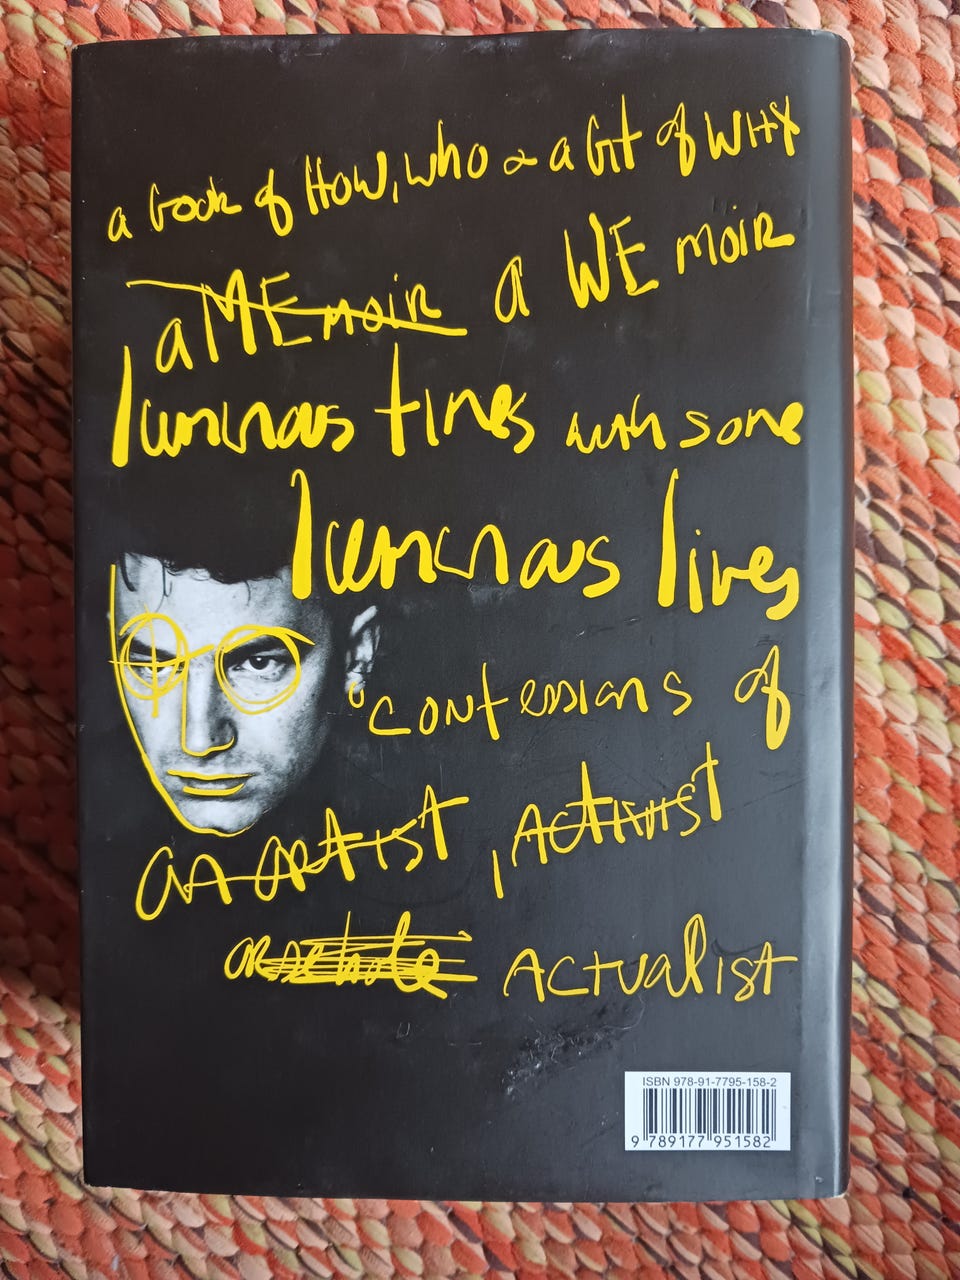 a book of HOW, who & a bit of WHY
a MEmoir a WE moir
luminous times with some
luminous lives
confessions of
an artist, Activist
arsehole Actualist
ISBN 978-91-7795-158-2
9 789177 951582